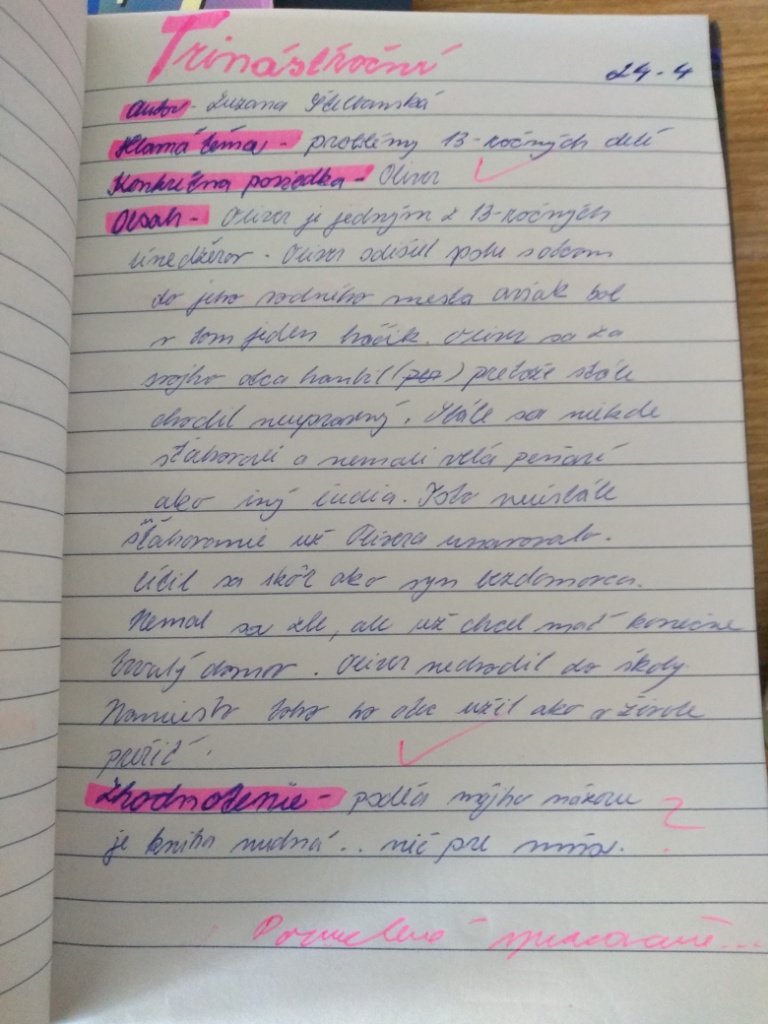 Trinásťroční
24.4
Autor - Zuzana Štelbanská
Hlavná téma - problémy 13-ročných detí
Konkrétna poviedka - Oliver
Obsah - Oliver je jedným z 13-ročných
tínedžerov. Oliver odišiel spolu s otcom
do jeho rodného mesta avšak bol
v tom jeden háčik. Oliver sa za
svojho otca hanbil (pre) pretože stále
chodil neupravený. Stále sa niekde
sťahovali a nemali veľa peňazí
ako iný ľudia. Toto neustále
sťahovanie už Olivera unavovalo.
Cítil sa skôr ako syn bezdomovca.
Nemal sa zle, ale už chcel mať konečne
trvalý domov. Oliver nechodil do školy.
Namiesto toho ho otec učil ako v živote
prežiť.
Zhodnotenie - podľa môjho názoru ?
je kniha nudná.. nič pre mňa.
spracované...